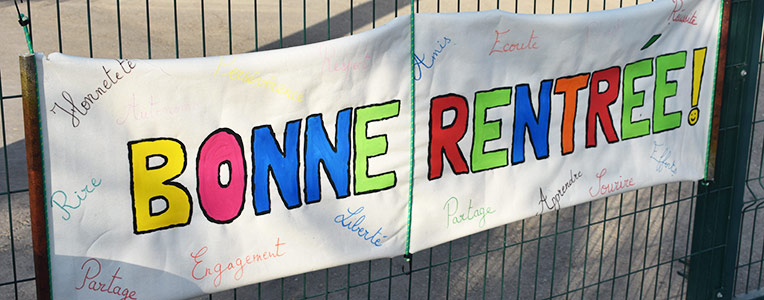 Honneteté
Amis
Ecoute
Réussite
BONNE RENTRÉE!
Rire
Liberté
Partage
Apprendre
Sourire
Efforts
Partage
Engagement